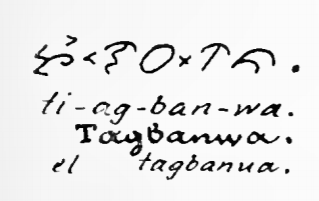 ti-ag-ban-wa.
Tagbanwa.
el tagbanua.